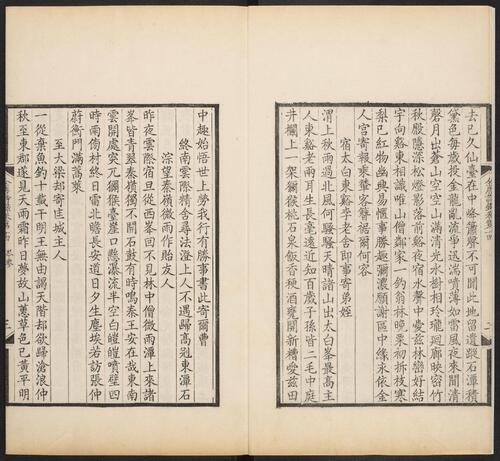 去已久仙臺在中峰簫聲不可聞此地留遺蹤石潭積
黛色每歲投金龍亂流爭迅湍噴薄如雷風夜來聞清
磬月出蒼山空空山滿清光水樹相玲瓏迴廊映密竹
秋殿隱深松燈影落前谿夜宿水聲中愛茲林巒好結
宇向谿東相識唯山僧鄰家一釣翁林晚栗初拆枝寒
棃已紅物幽興易愜事勝趣彌濃願謝區中緣永依金
人宮寄報乘輦客簪裾爾何容
宿太白東谿李老舍卽事寄弟姪
渭上秋雨過北風何騷騷天晴諸山出太白峯最高主
人東谿老兩耳生長毫遠近知百歲子孫皆二毛中庭
井欄上一架獼猴桃石泉飯香秔酒甕開新槽愛茲田
中趣始悟世上勞我行有勝事書此寄爾曹
終南雲際精舍尋法澄上人不遇歸高冠東潭石
淙望秦嶺微雨作貽友人
昨夜雲際宿旦從西峯回不見林中僧微雨潭上來諸
峯皆青翠秦嶺獨不開石鼓有時鳴秦王安在哉東南
雲開處突兀獼猴臺崖口懸瀑流半空白皚皚噴壁四
時雨傍村終日雷北瞻長安道日夕生塵埃若訪張仲
蔚衡門滿蒿萊
至大梁卻寄匡城主人
一從棄魚釣十載干明王無由謁天階卻欲歸滄浪仲
秋至東郡遂見天雨霜昨日夢故山蕙草色已黃平明